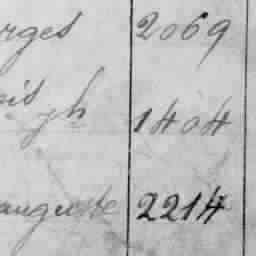 rges 2069
ois
gh 1404
auguste 2214